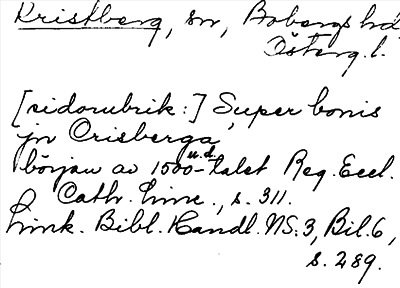 Kristberg, sn, Bobergs hd
Österg. l.
[sidorubrik:] Super bonis
jn Crisberga,
u.d.
början av 1500-talet Reg. Eccl.
Cath. Linc., s. 311.
Link. Bibl. Handl. NS: 3, Bil. 6,
s. 289.